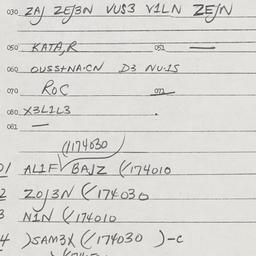 030 ZAJ ZEJ3N VUS3 V1LN ZEJN
050 KATA,R 051 —
060 OUSS+NA·CN D3 NU·1S
070 ROC 071
080 X3L1L3
081 —
(/174030
01 AL1F BAJZ (/174010
2 ZOJ3N (/174030
3 N1N (/174010
4 )SAM3X (/174030 )-C